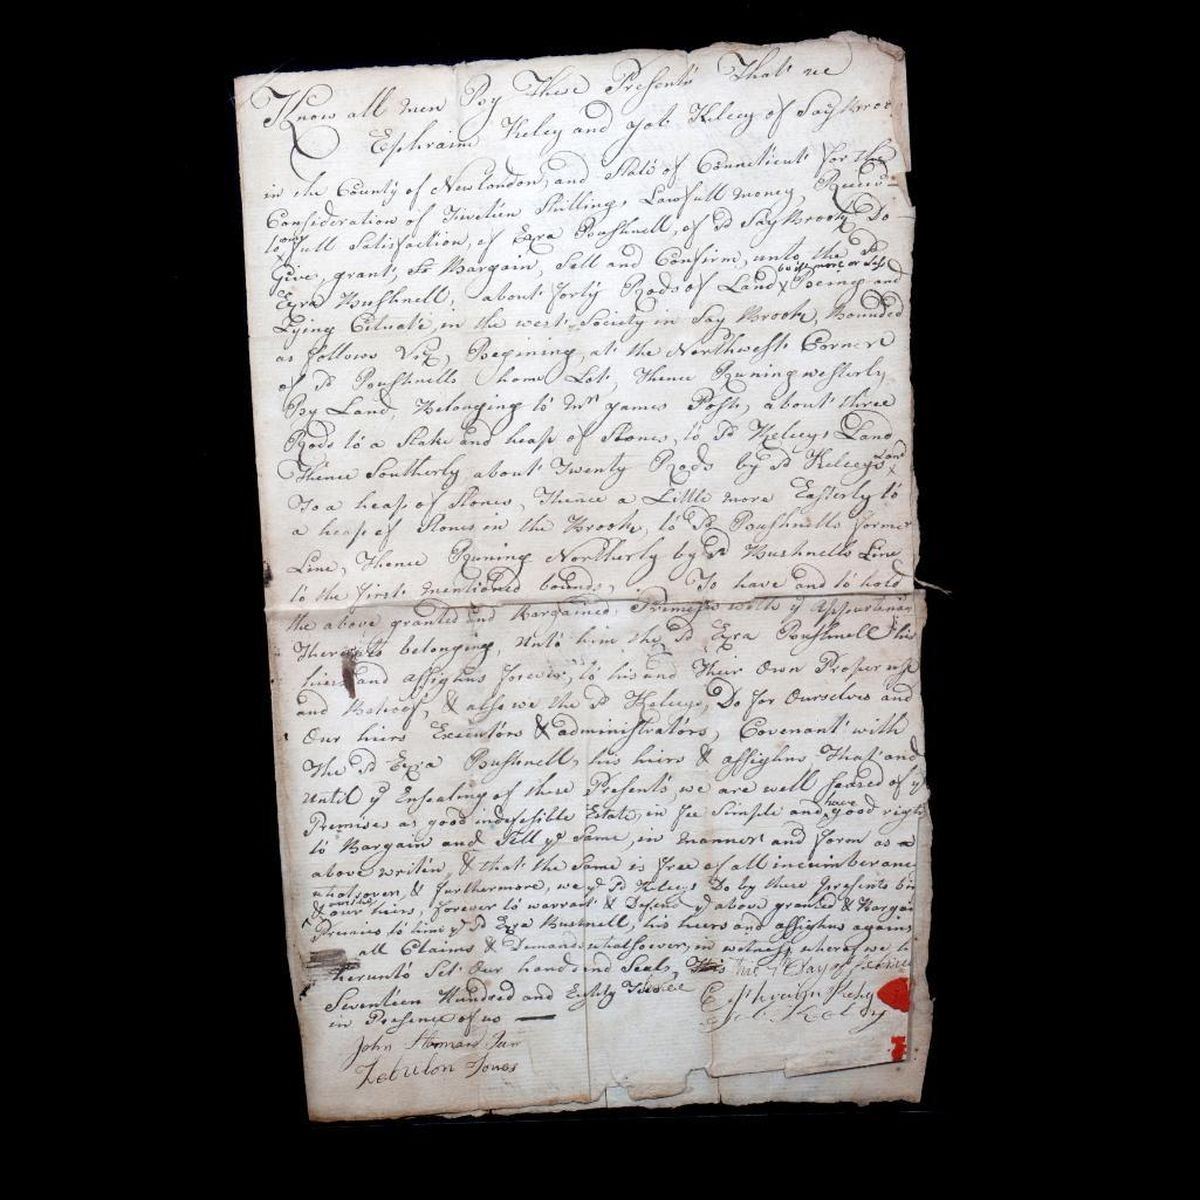 Know all men By These Presents That we
Ephraim Kelcy and Job Kelcey of SayBroo
in the County of New London, and State of Connecticut for the
Consideration of Twelien Shillings Lawfull money, Receivd
to our full Satisfaction, of Ezra Bushnell, of sd SayBrook, Do
Give, grant, Bargain, Sell and Confirm, unto the sd
Ezra Bushnell, about forty Rods of Land be it more or less Being and
Lying Cituate, in the west Society in Say Brook, Bounded
as follows Viz, Begining, at the Northwest Corner
of sd Bushnells home Lot, Thence Runing westerly
By Land, Belonging to Mr James Post, about three
Rods to a Stake and heap of Stones, to sd Kelceys Land
Thence Southerly about Twenty Rods by sd Kelceys Land
To a heap of Stones, Thence a Little more Easterly to
a heap of Stones in the Brook, to sd Bushnells former
Line, Thence Runing Northerly by sd Bushnells Line
to the first mentioned bounds, To have and to hold
the above granted and Bargained Premises with ye Appurtenan
Thereto belonging, unto him the sd Ezra Bushnell his
heirs and assighns forever, to his and Their Own Proper use
and Behoof, & also we the sd Kelceys, Do for Ourselves and
Our heirs Executors & administrators, Covenant with
The sd Ezra Bushnell, his heirs & assighns, That and
Until ye Ensealing of these Presents we are well seazed of ye
Premises as good indefesible Estate, in fee Simple and have good right
to Bargain and Sell ye Same, in manner and form as a
above writen, & that the Same is free of all incumberanc
whatsover, & furthermore, we ye sd Kelceys Do by these presents bin
& our heirs, forever to warrant & Defend ye above granted & Bargai
Premises to him ye sd Ezra Bushnell, his heirs and assighns agains
all Claims & Demands whatsoever, in witness whereof we h
herunto Set Our hands and Seals, This the 7 Day of
Seventeen Hundred and Eighty Three
in Presence of us Ephraim Kelcy
John Job Kelcy
Zebulon Jones